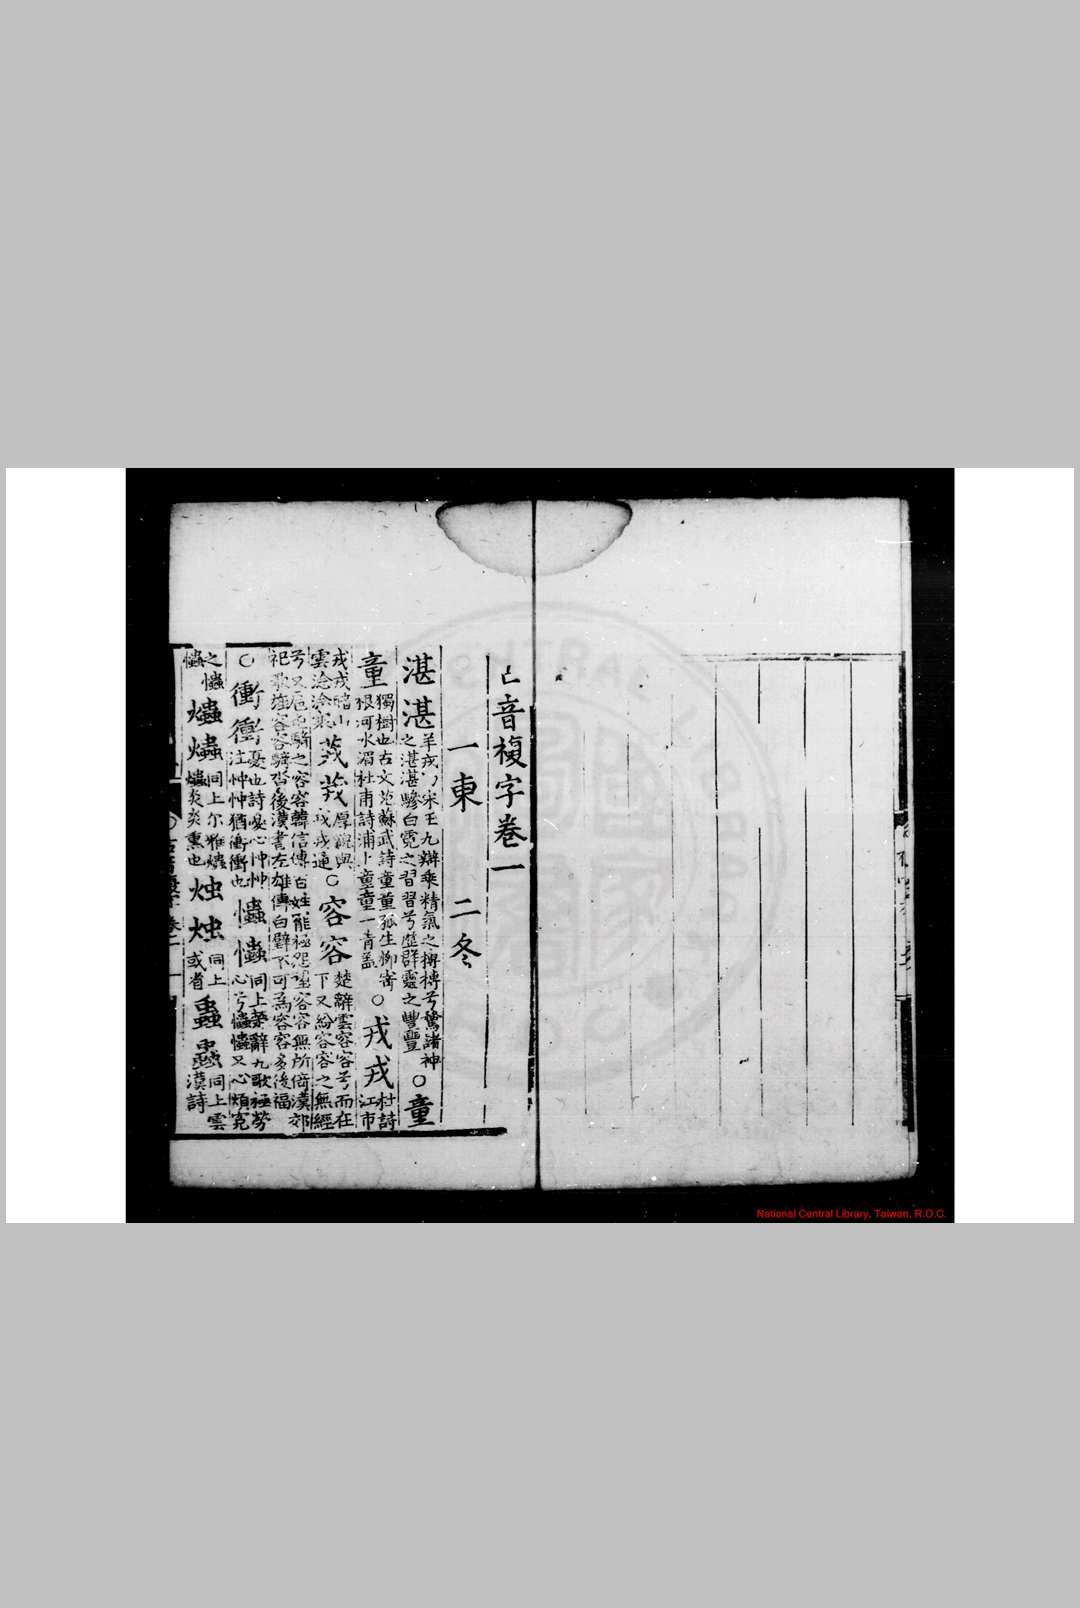 音複字卷一
一東 二冬
湛湛 羊戎 宋玉九辯乘精氣之摶摶兮騖諸神
之湛湛驂白霓之習習兮歷群靈之豐豐 ○童
童 獨樹也古文苑蘇武詩童童孤生柳寄
根河水湄杜甫詩浦上童童一青蓋 ○戎戎 杜詩
江市
戎戎暗山
雲淰淰寒 茙茙 厚 與
戎戎通 ○容容 楚辭雲容容兮而在
下又紛容容之無經
兮又 騎之容容韓信傳百姓罷極怨望容容無所倚漢郊
祀歌旌容容騎沓沓後漢書左雄傳白璧不可為容容多後福
○衝衝 憂也詩憂心忡忡
注忡忡猶衝衝也 爞爞 同上楚辭九歌極勞
心兮爞爞又心煩冤
之爞
爞 爞爞 同上尔雅爞
爞炎炎熏也 烛烛 同上
或省 蟲蟲 同上雲
漢詩
National Central Library, Taiwan, R.O.C.